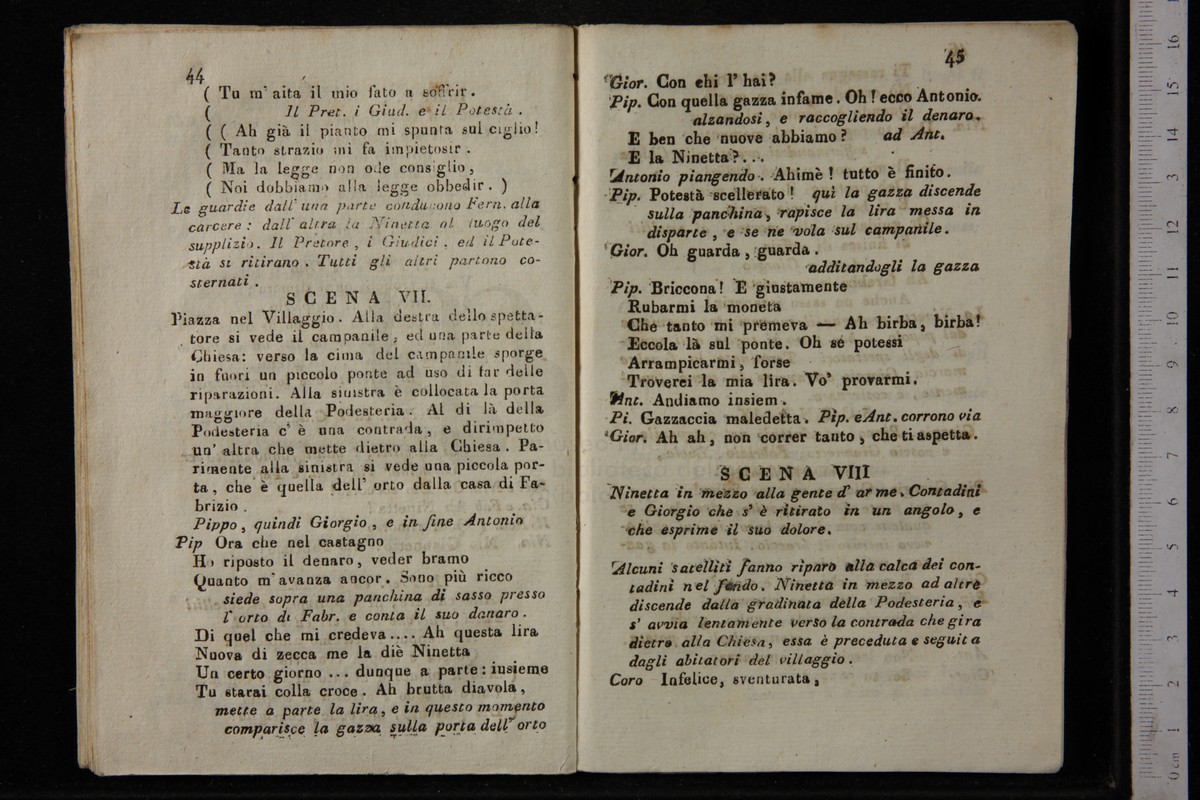 44
( Tu m' aita il mio fato a soffrir.
( Il Pret. i Giud. e il Potestà.
( ( Ah già il pianto mi spunta sul ciglio!
( Tanto strazio mi fa impietosir.
( Ma la legge non ode consiglio,
( Noi dobbiamo alla legge obbedir. )
Le guardie dall' una parte conducono Fern. alla
carcere: dall' altra la Ninetta al luogo del
supplizio. Il Pretore, i Giudici, ed il Pote-
stà si ritirano. Tutti gli altri partono co-
sternati.
SCENA VII.
Piazza nel Villaggio. Alla destra dello spetta-
tore si vede il campanile, ed una parte della
Chiesa: verso la cima del campanile sporge
in fuori un piccolo ponte ad uso di far delle
riparazioni. Alla sinistra è collocata la porta
maggiore della Podesteria. Al di là della
Podesteria c' è una contrada, e dirimpetto
un' altra che mette dietro alla Chiesa. Pa-
rimente alla sinistra si vede una piccola por-
ta, che è quella dell' orto dalla casa di Fa-
brizio.
Pippo, quindi Giorgio, e in fine Antonio
Pip Ora che nel castagno
Ho riposto il denaro, veder bramo
Quanto m' avanza ancor. Sono più ricco
siede sopra una panchina di sasso presso
l' orto di Fabr. e conta il suo danaro.
Di quel che mi credeva.... Ah questa lira
Nuova di zecca me la diè Ninetta
Un certo giorno ... dunque a parte: insieme
Tu starai colla croce. Ah brutta diavola,
mette a parte la lira, e in questo momento
comparisce la gazza sulla porta dell' orto
45
Gior. Con chi l' hai?
Pip. Con quella gazza infame. Oh! ecco Antonio.
alzandosi, e raccogliendo il denaro.
E ben che nuove abbiamo? ad Ant.
E la Ninetta?...
Antonio piangendo. Ahimè! tutto è finito.
Pip. Potestà scellerato! quì la gazza discende
sulla panchina, rapisce la lira messa in
disparte, e se ne vola sul campanile.
Gior. Oh guarda, guarda.
additandogli la gazza
Pip. Briccona! E giustamente
Rubarmi la moneta
Che tanto mi premeva — Ah birba, birba!
Eccola là sul ponte. Oh sè potessi
Arrampicarmi, forse
Troverei la mia lira. Vo' provarmi.
Ant. Andiamo insiem.
Pi. Gazzaccia maledetta. Pip. e Ant. corrono via
Gior. Ah ah, non correr tanto, che ti aspetta.
SCENA VIII
Ninetta in mezzo alla gente d' ar me. Contadini
e Giorgio che s' è ritirato in un angolo, e
che esprime il suo dolore.
Alcuni satelliti fanno riparo alla calca dei con-
tadini nel fondo. Ninetta in mezzo ad altre
discende dalla gradinata della Podesteria, e
s' avvia lentamente verso la contrada che gira
dietro alla Chiesa, essa è preceduta e seguita
dagli abitatori del villaggio.
Coro Infelice, sventurata,
0 cm 1 2 3 4 5 6 7 8 9 10 11 12 13 14 15 16